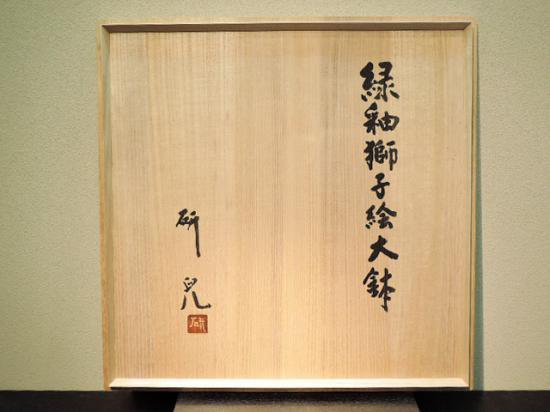 緑釉獅子絵大鉢
研児
研